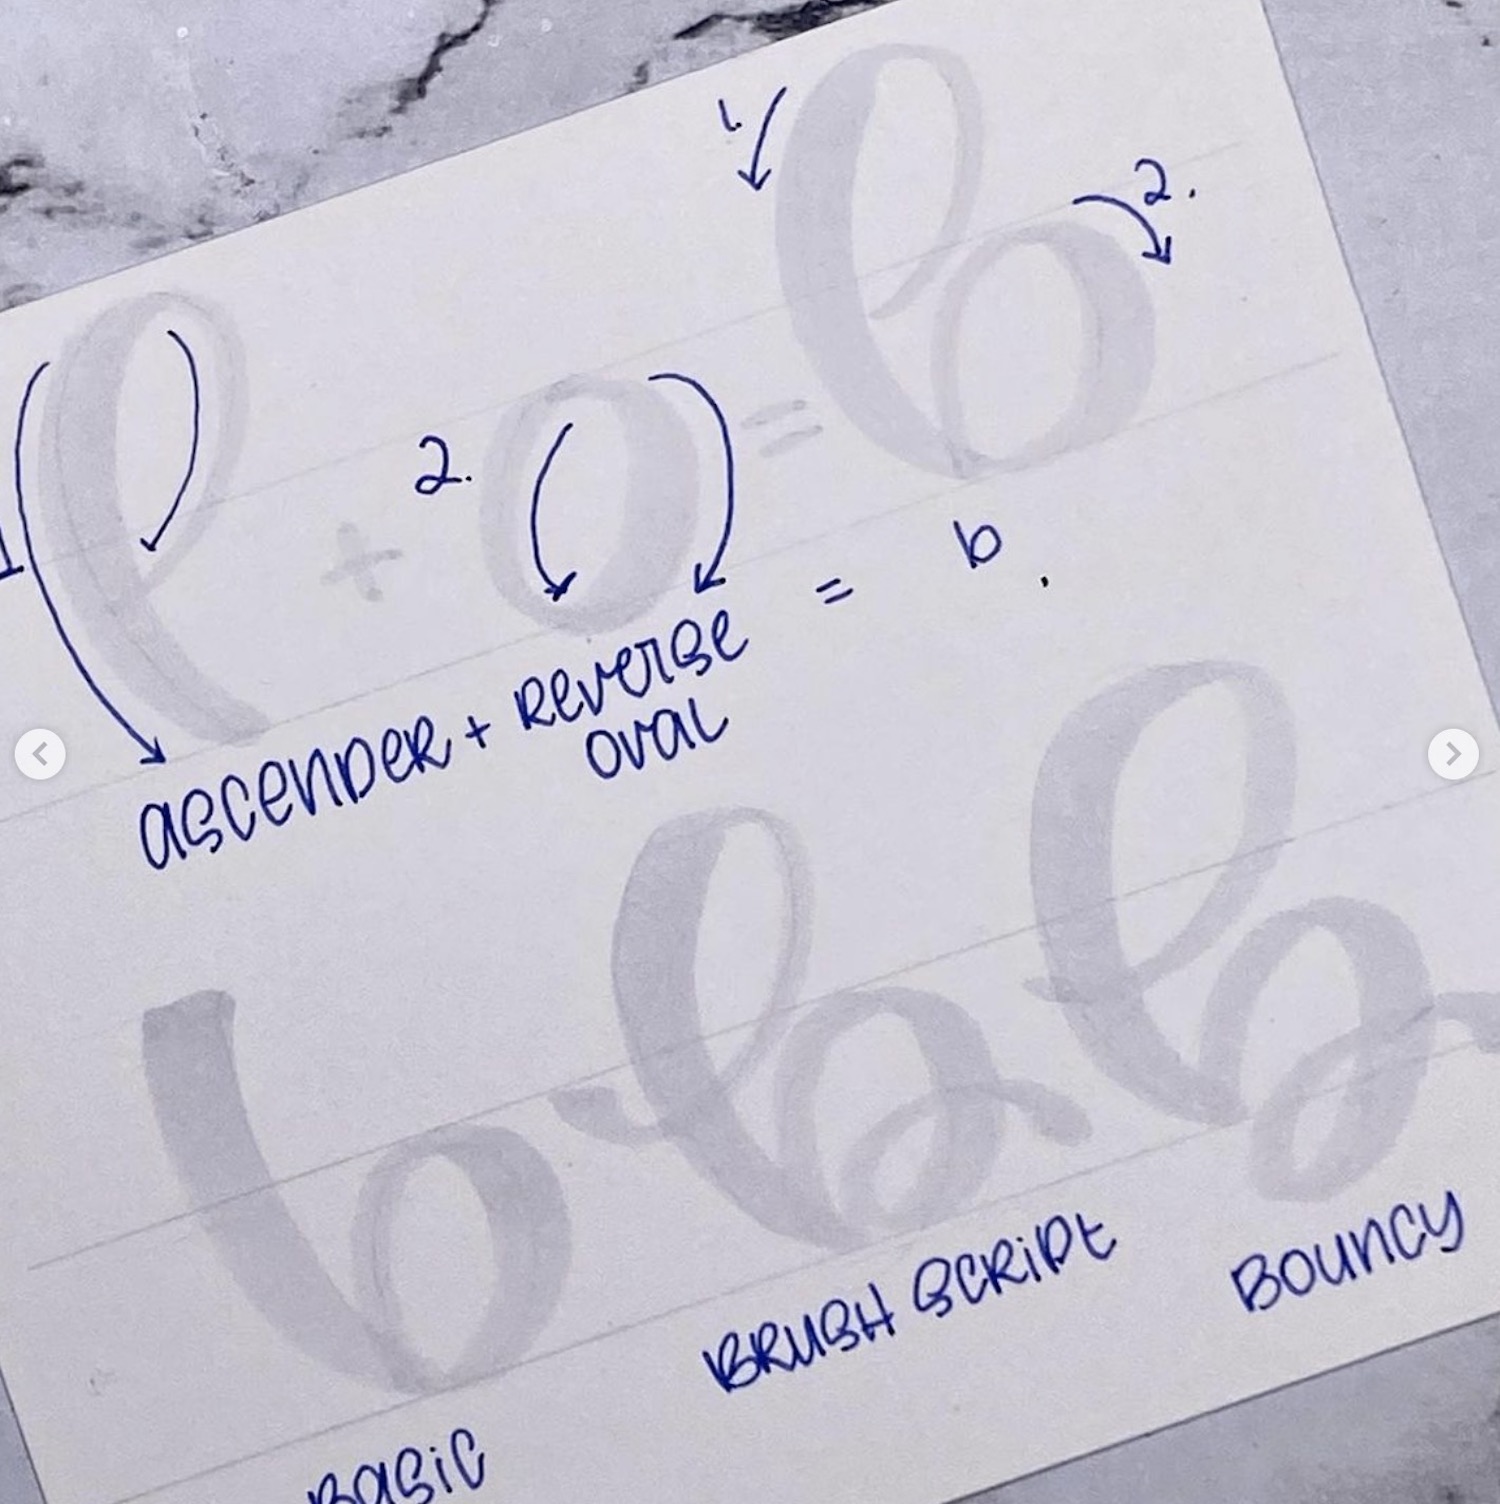 1. 2.
l + o = b
1 2.
ascender + reverse = b.
oval
b b b
Basic Brush Script Bouncy